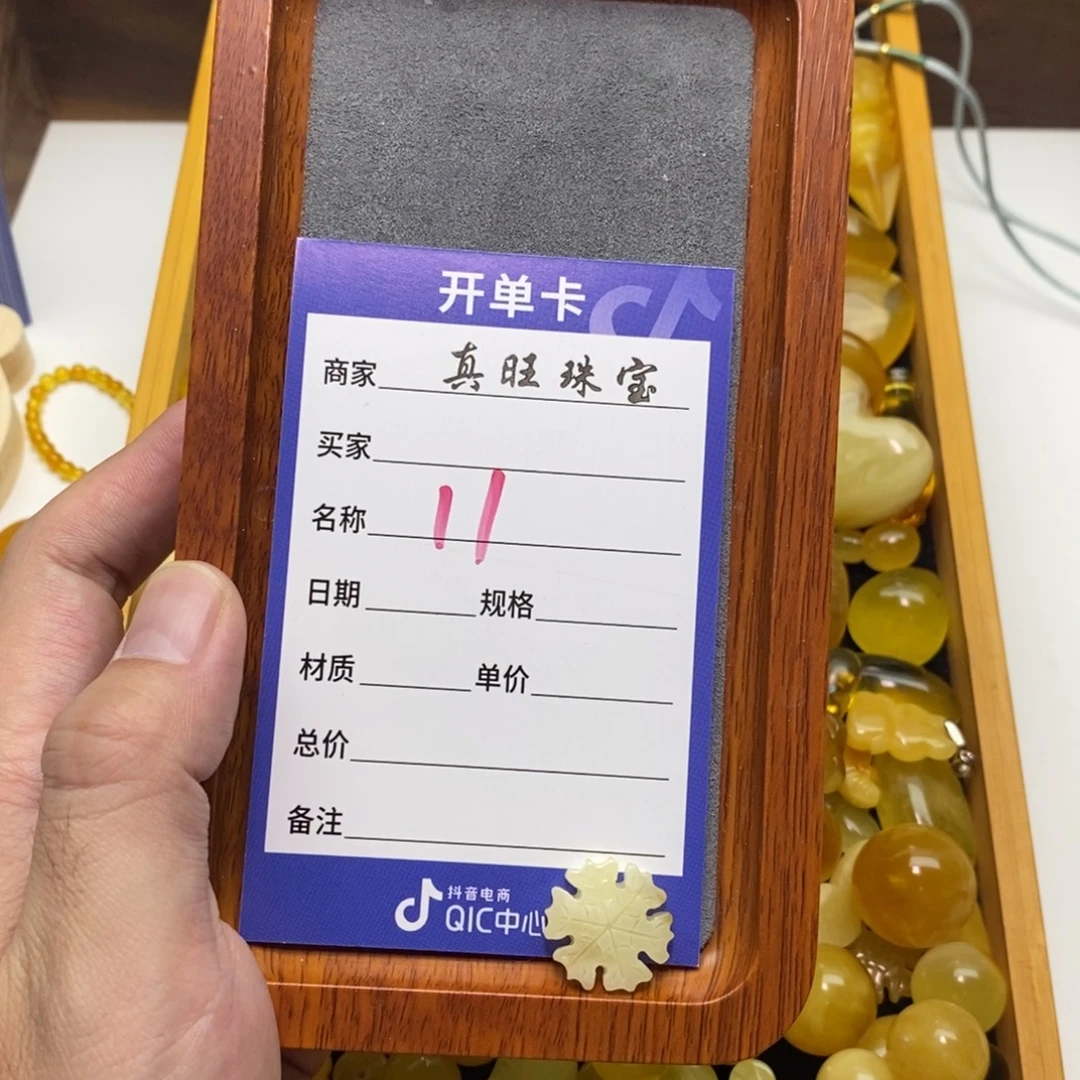 开单卡
商家 真旺珠宝
买家
名称 11
日期 规格
材质 单价
总价
备注
抖音电商
QIC中心